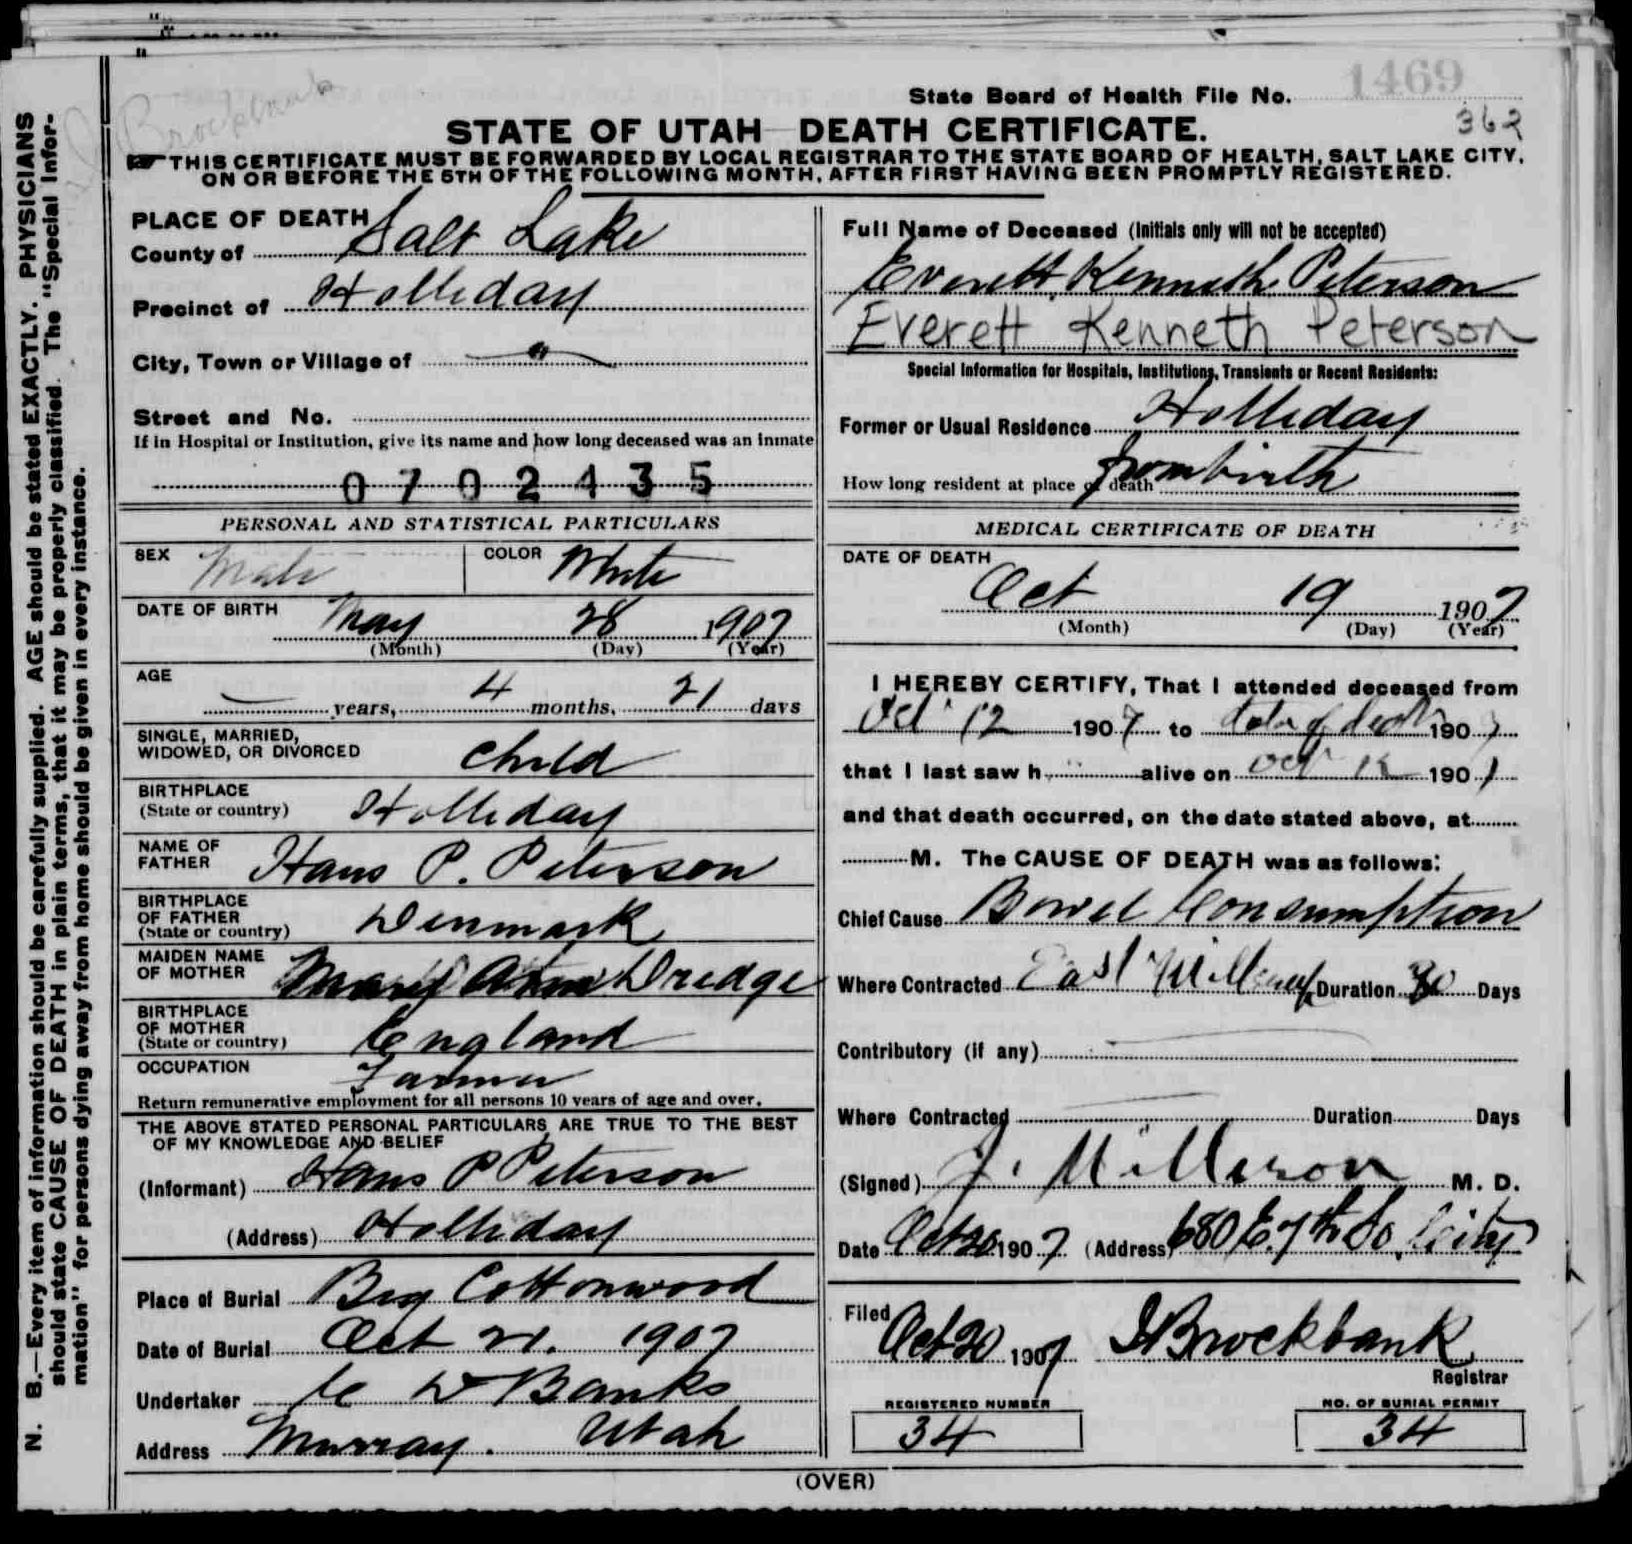 1469
State Board of Health File No.
362
STATE OF UTAH DEATH CERTIFICATE.
THIS CERTIFICATE MUST BE FORWARDED BY LOCAL REGISTRAR TO THE STATE BOARD OF HEALTH, SALT LAKE CITY,
ON OR BEFORE THE 5TH OF THE FOLLOWING MONTH, AFTER FIRST HAVING BEEN PROMPTLY REGISTERED.
N. B.—Every item of information should be carefully supplied. AGE should be stated EXACTLY. PHYSICIANS
should state CAUSE OF DEATH in plain terms, that it may be properly classified. The "Special Infor-
mation" for persons dying away from home should be given in every instance.
Brockbank
PLACE OF DEATH
County of Salt Lake
Precinct of Holliday
City, Town or Village of
Street and No.
If in Hospital or Institution, give its name and how long deceased was an inmate
0702435
PERSONAL AND STATISTICAL PARTICULARS
SEX Male COLOR White
DATE OF BIRTH May 28 1907
(Month) (Day) (Year)
AGE
— years, 4 months, 21 days
SINGLE, MARRIED,
WIDOWED, OR DIVORCED Child
BIRTHPLACE
(State or country) Holliday
NAME OF
FATHER Hans P. Peterson
BIRTHPLACE
OF FATHER
(State or country) Denmark
MAIDEN NAME
OF MOTHER Mary Ann Dredge
BIRTHPLACE
OF MOTHER
(State or country) England
OCCUPATION Farmer
Return remunerative employment for all persons 10 years of age and over.
THE ABOVE STATED PERSONAL PARTICULARS ARE TRUE TO THE BEST
OF MY KNOWLEDGE AND BELIEF
(Informant) Hans P Peterson
(Address) Holliday
Place of Burial Big Cottonwood
Date of Burial Oct 21. 1907
Undertaker C D Banks
Address Murray. Utah
Full Name of Deceased (Initials only will not be accepted)
Everett Kenneth Peterson
Everett Kenneth Peterson
Special Information for Hospitals, Institutions, Transients or Recent Residents:
Former or Usual Residence Holliday
How long resident at place of death from birth
MEDICAL CERTIFICATE OF DEATH
DATE OF DEATH
Oct 19 1907
(Month) (Day) (Year)
I HEREBY CERTIFY, That I attended deceased from
Oct 12 1907 to date of death 190
that I last saw h alive on Oct 190
and that death occurred, on the date stated above, at
M. The CAUSE OF DEATH was as follows:
Chief Cause Bowel Consumption
Where Contracted East Mill Duration Days
Contributory (if any)
Where Contracted Duration Days
(Signed) J. Millison M. D.
Date Oct 20 1907 (Address) 680 E. 7th So. City
Filed
Oct 20 1907 Brockbank
Registrar
REGISTERED NUMBER
34
NO. OF BURIAL PERMIT
34
(OVER)